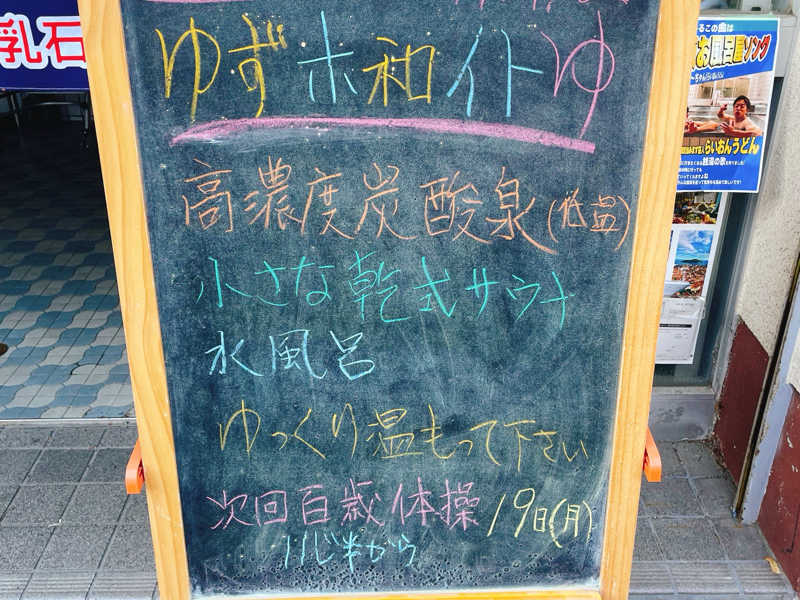 ゆずホ和イトゆ
高濃度炭酸泉(低温)
小さな乾式サウナ
水風呂
ゆっくり温もって下さい
次回百歳体操 19日(月)
11じ半から
乳石
お風呂屋ソング
らいおんうどん